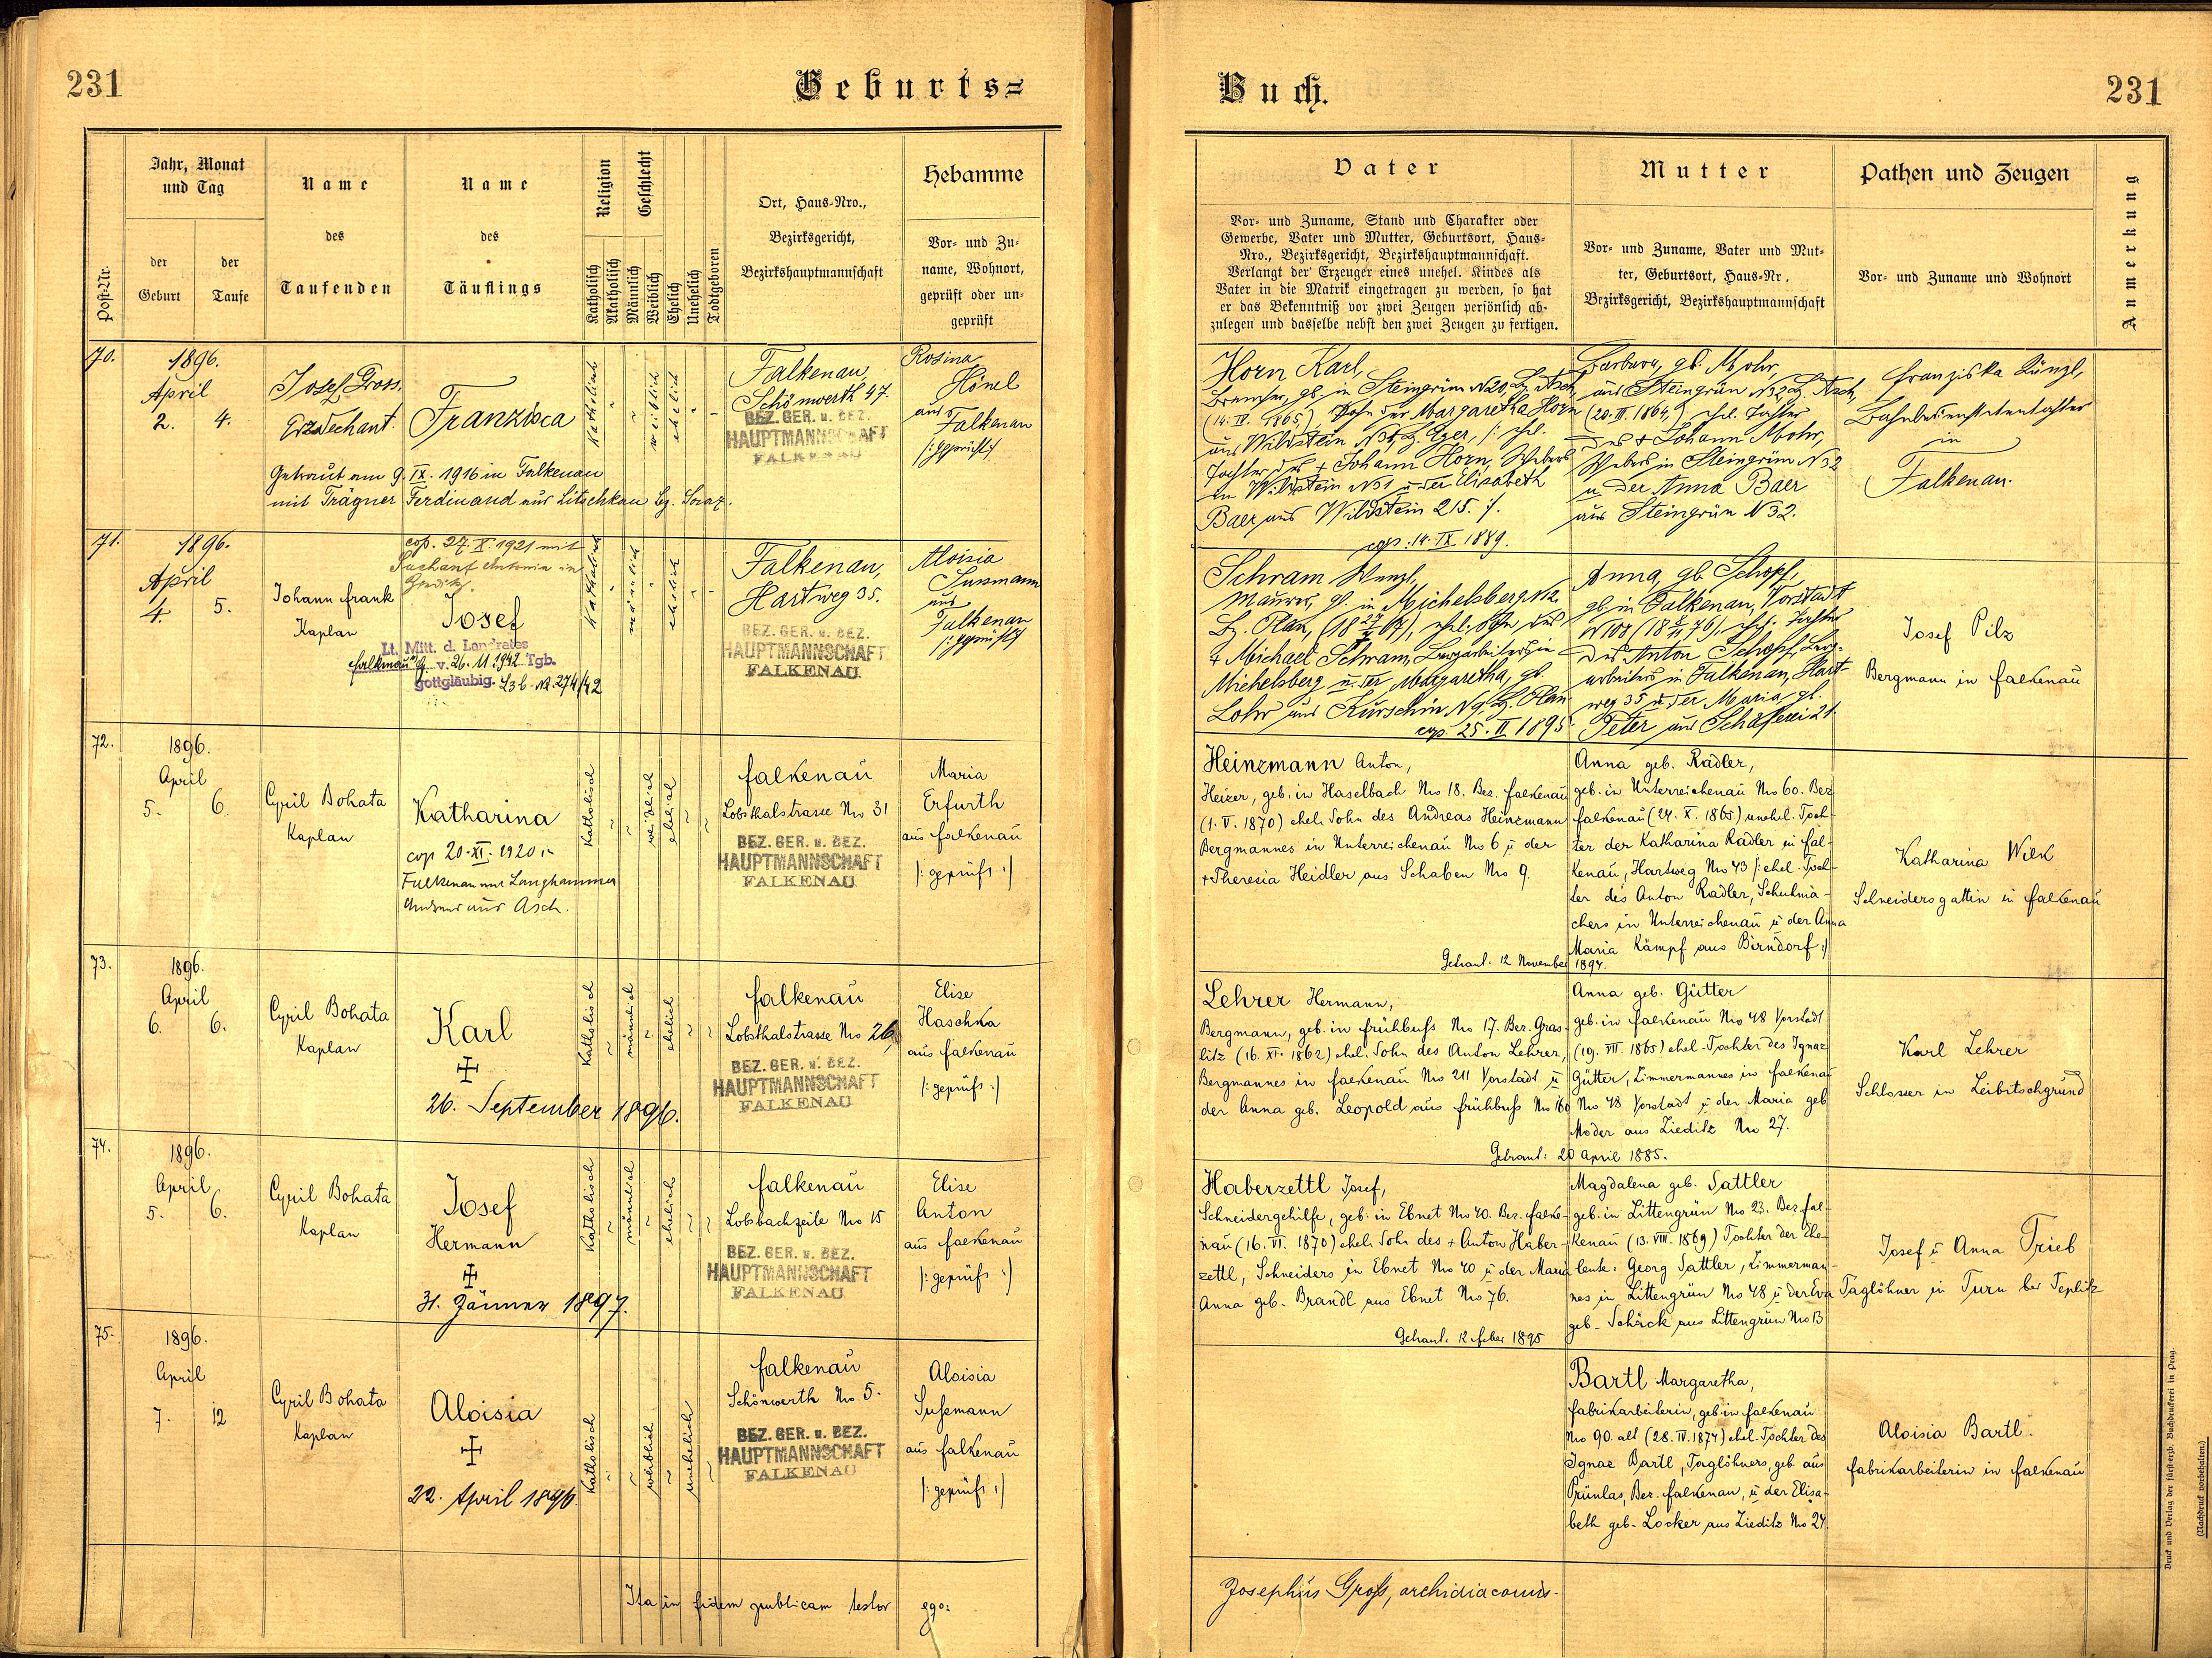 231
Geburts=
Buch.
231
Post-Nr.
Jahr, Monat
und Tag
der
Geburt
der
Taufe
Name
des
Taufenden
Name
des
Täuflings
Religion
Katholisch
Akatholisch
Geschlecht
Männlich
Weiblich
Ehelich
Unehelich
Todtgeboren
Ort, Haus-Nro.,
Bezirksgericht,
Bezirkshauptmannschaft
Hebamme
Vor- und Zu-
name, Wohnort,
geprüft oder un-
geprüft
Vater
Vor- und Zuname, Stand und Charakter oder
Gewerbe, Vater und Mutter, Geburtsort, Haus-
Nro., Bezirksgericht, Bezirkshauptmannschaft.
Verlangt der Erzeuger eines unehel. Kindes als
Vater in die Matrik eingetragen zu werden, so hat
er das Bekenntniß vor zwei Zeugen persönlich ab-
zulegen und dasselbe nebst den zwei Zeugen zu fertigen.
Mutter
Vor- und Zuname, Vater und Mut-
ter, Geburtsort, Haus-Nr.,
Bezirksgericht, Bezirkshauptmannschaft
Pathen und Zeugen
Vor- und Zuname und Wohnort
Anmerkung
70.
1896.
April
2. 4.
Josef Gross.
Erzdechant.
Franzisca
Katholisch
weiblich
ehelich
Getraut am 9. IX. 1916 in Falkenau
mit Trägner Ferdinand aus Litschkau Bz. Saaz.
Falkenau,
Schönwerth 47.
BEZ. GER. u. BEZ.
HAUPTMANNSCHAFT
FALKENAU
Rosina
Hönel
aus
Falkenau
/:geprüft:/
Horn Karl,
geb. in Steingrün N 20, Bz. Asch,
(14. IV. 1865), Sohn der Margaretha Horn
aus Wildstein N 31, Bz. Eger, /: ehel.
Tochter des + Johann Horn, Webers
in Wildstein N 31 u. der Elisabeth
Baer aus Wildstein 215. :/.
cop: 14. IX 1889.
Barbara, gb. Mohr,
aus Steingrün N 32, Bz. Asch,
(20. III. 1864,) ehel. Tochter
des + Johann Mohr,
Webers in Steingrün N 32
u. der Anna Baer
aus Steingrün N 32.
Franziska Künzl,
Bahnbediensteten tochter
in
Falkenau.
71.
1896.
April
4. 5.
Johann Frank
Kaplan
cop. 27. X. 1921 mit
Suchant Antonia in
Josef
Lt. Mitt. d. Landrates
Falkenau a/Eg. v. 26. 11 1942 Tgb.
gottgläubig. L3 b. No. 274/42
Katholisch
männlich
ehelich
Falkenau,
Hartweg 35.
BEZ. GER. u. BEZ.
HAUPTMANNSCHAFT
FALKENAU
Aloisia
Sussmann
aus
Falkenau
/:geprüft:/
Schram Wenzl,
Maurer, gb. in Michelsberg N 12.
Bz. Plan, (18 27/X 67), ehel. Sohn des
+ Michael Schram, Bergarbeiters in
Michelsberg u. der Margaretha, gb.
Lohr aus Kurschin N 9, Bz. Plan
cop. 25. II 1895
Anna, gb. Schopf,
gb. in Falkenau, Vorstadt
N 108 ehel. Tochter
des Anton Schopf, Berg-
arbeiters in Falkenau, Hart-
weg 35 u. der Maria gb.
Peter aus Schäferei 21.
Josef Pilz
Bergmann in Falkenau
72.
1896.
April
5. 6.
Cyril Bohata
Kaplan
Katharina
cop 20. XI. 1920 in
Falkenau mit Langhammer
Andreas aus Asch.
Katholisch
weiblich
ehelich
Falkenau
Lobsthalstrasse No 31
BEZ. GER. u. BEZ.
HAUPTMANNSCHAFT
FALKENAU
Maria
Erfurth
aus Falkenau
/: geprüft :/
Heinzmann Anton,
Heizer, geb. in Haselbach No 18. Bez. Falkenau
(1. V. 1870) ehel. Sohn des Andreas Heinzmann
Bergmannes in Unterreichenau No 6 u. der
+ Theresia Heidler aus Schaben No 9.
Getraut. 12 November 1894.
Anna geb. Radler,
geb. in Unterreichenau No 60. Bez
Falkenau (24. X. 1865) unehel. Toch-
ter der Katharina Radler in Fal-
kenau, Hartweg No 43 /: ehel. Toch-
ter des Anton Radler, Schuhma-
chers in Unterreichenau u. der Anna
Maria Kämpf aus Birndorf :/
Katharina Wilk
Schneidersgattin in Falkenau
73.
1896.
April
6. 6.
Cyril Bohata
Kaplan
Karl
26. September 1896.
Katholisch
männlich
ehelich
Falkenau
Lobsthalstrasse No 26
BEZ. GER. u. BEZ.
HAUPTMANNSCHAFT
FALKENAU
Elise
Haschka
aus Falkenau
/: geprüft :/
Lehrer Hermann,
Bergmann, geb. in Frühbuss No 17. Bez. Gras-
litz (16. XI. 1862) ehel. Sohn des Anton Lehrer,
Bergmannes in Falkenau No 211 Vorstadt u.
der Anna geb. Leopold aus Frühbuss No 160
Getraut: 20 April 1885.
Anna geb. Gütter
geb. in Falkenau No 48 Vorstadt
(19. VII. 1865) ehel. Tochter des Ignaz
Gütter, Zimmermannes in Falkenau
No 48 Vorstadt u. der Maria geb
Moder aus Zieditz No 27.
Karl Lehrer
Schlosser in Leibitschgrund
74.
1896.
April
5. 6.
Cyril Bohata
Kaplan
Josef
Hermann
31. Jänner 1897.
Katholisch
männlich
ehelich
Falkenau
Lobsbachzeile No 15
BEZ. GER. u. BEZ.
HAUPTMANNSCHAFT
FALKENAU
Elise
Anton
aus Falkenau
/: geprüft :/
Haberzettl Josef,
Schneidergehilfe, geb. in Ebnet No 40. Bez. Falke-
nau (16. VI. 1870) ehel. Sohn des + Anton Haber-
zettl, Schneiders in Ebnet No 40 u. der Maria
Anna geb. Brandl aus Ebnet No 76.
Getraut. 12 Feber 1895
Magdalena geb. Sattler
geb. in Littengrün No 23. Bez. Fal-
kenau (13. VIII. 1869) Tochter der Ehe-
leute: Georg Sattler, Zimmerman-
nes in Littengrün No 48 u. der Eva
geb. Schöck aus Littengrün No 13
Josef u. Anna Trieb
Taglöhner in Turn bei Teplitz
75.
1896.
April
7. 12
Cyril Bohata
Kaplan
Aloisia
22. April 1896.
Katholisch
weiblich
unehelich
Falkenau
Schönwerth No 5.
BEZ. GER. u. BEZ.
HAUPTMANNSCHAFT
FALKENAU
Aloisia
Sußmann
aus Falkenau
/: geprüft :/
Bartl Margaretha,
Fabrikarbeiterin, geb in Falkenau
No 90. alt (28. IV. 1874) ehel. Tochter des
Ignaz Bartl, Taglöhners, geb aus
Prünlas, Bez. Falkenau, u. der Elisa-
beth geb. Locker aus Zieditz No 24.
Aloisia Bartl.
Fabrikarbeiterin in Falkenau
Ita in fidem publicam testor ego:
Josephus Groß, archidiaconus.
Druck und Verlag der fürsterzb. Buchdruckerei in Prag.
(Nachdruck vorbehalten.)